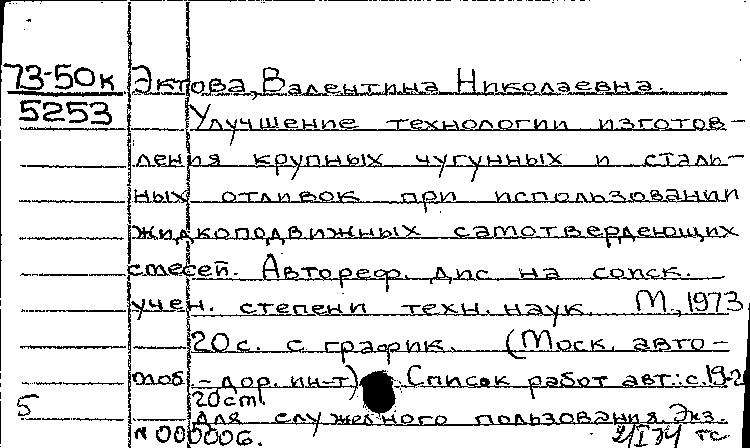 73-50к Эктова, Валентина Николаевна.
5253 Улучшение технологии изготов-
ления крупных чугунных и сталь-
ных отливок при использовании
жидкоподвижных самотвердеющих
смесей. Автореф. дис на соиск.
учен. степени техн. наук. М., 1973
20 с. с график. (Моск. авто-
моб.-дор. ин-т) Список работ авт.: с. 19-20
20см
5 Для служебного пользования. Экз.
№ 000006. 2/I 74 тс